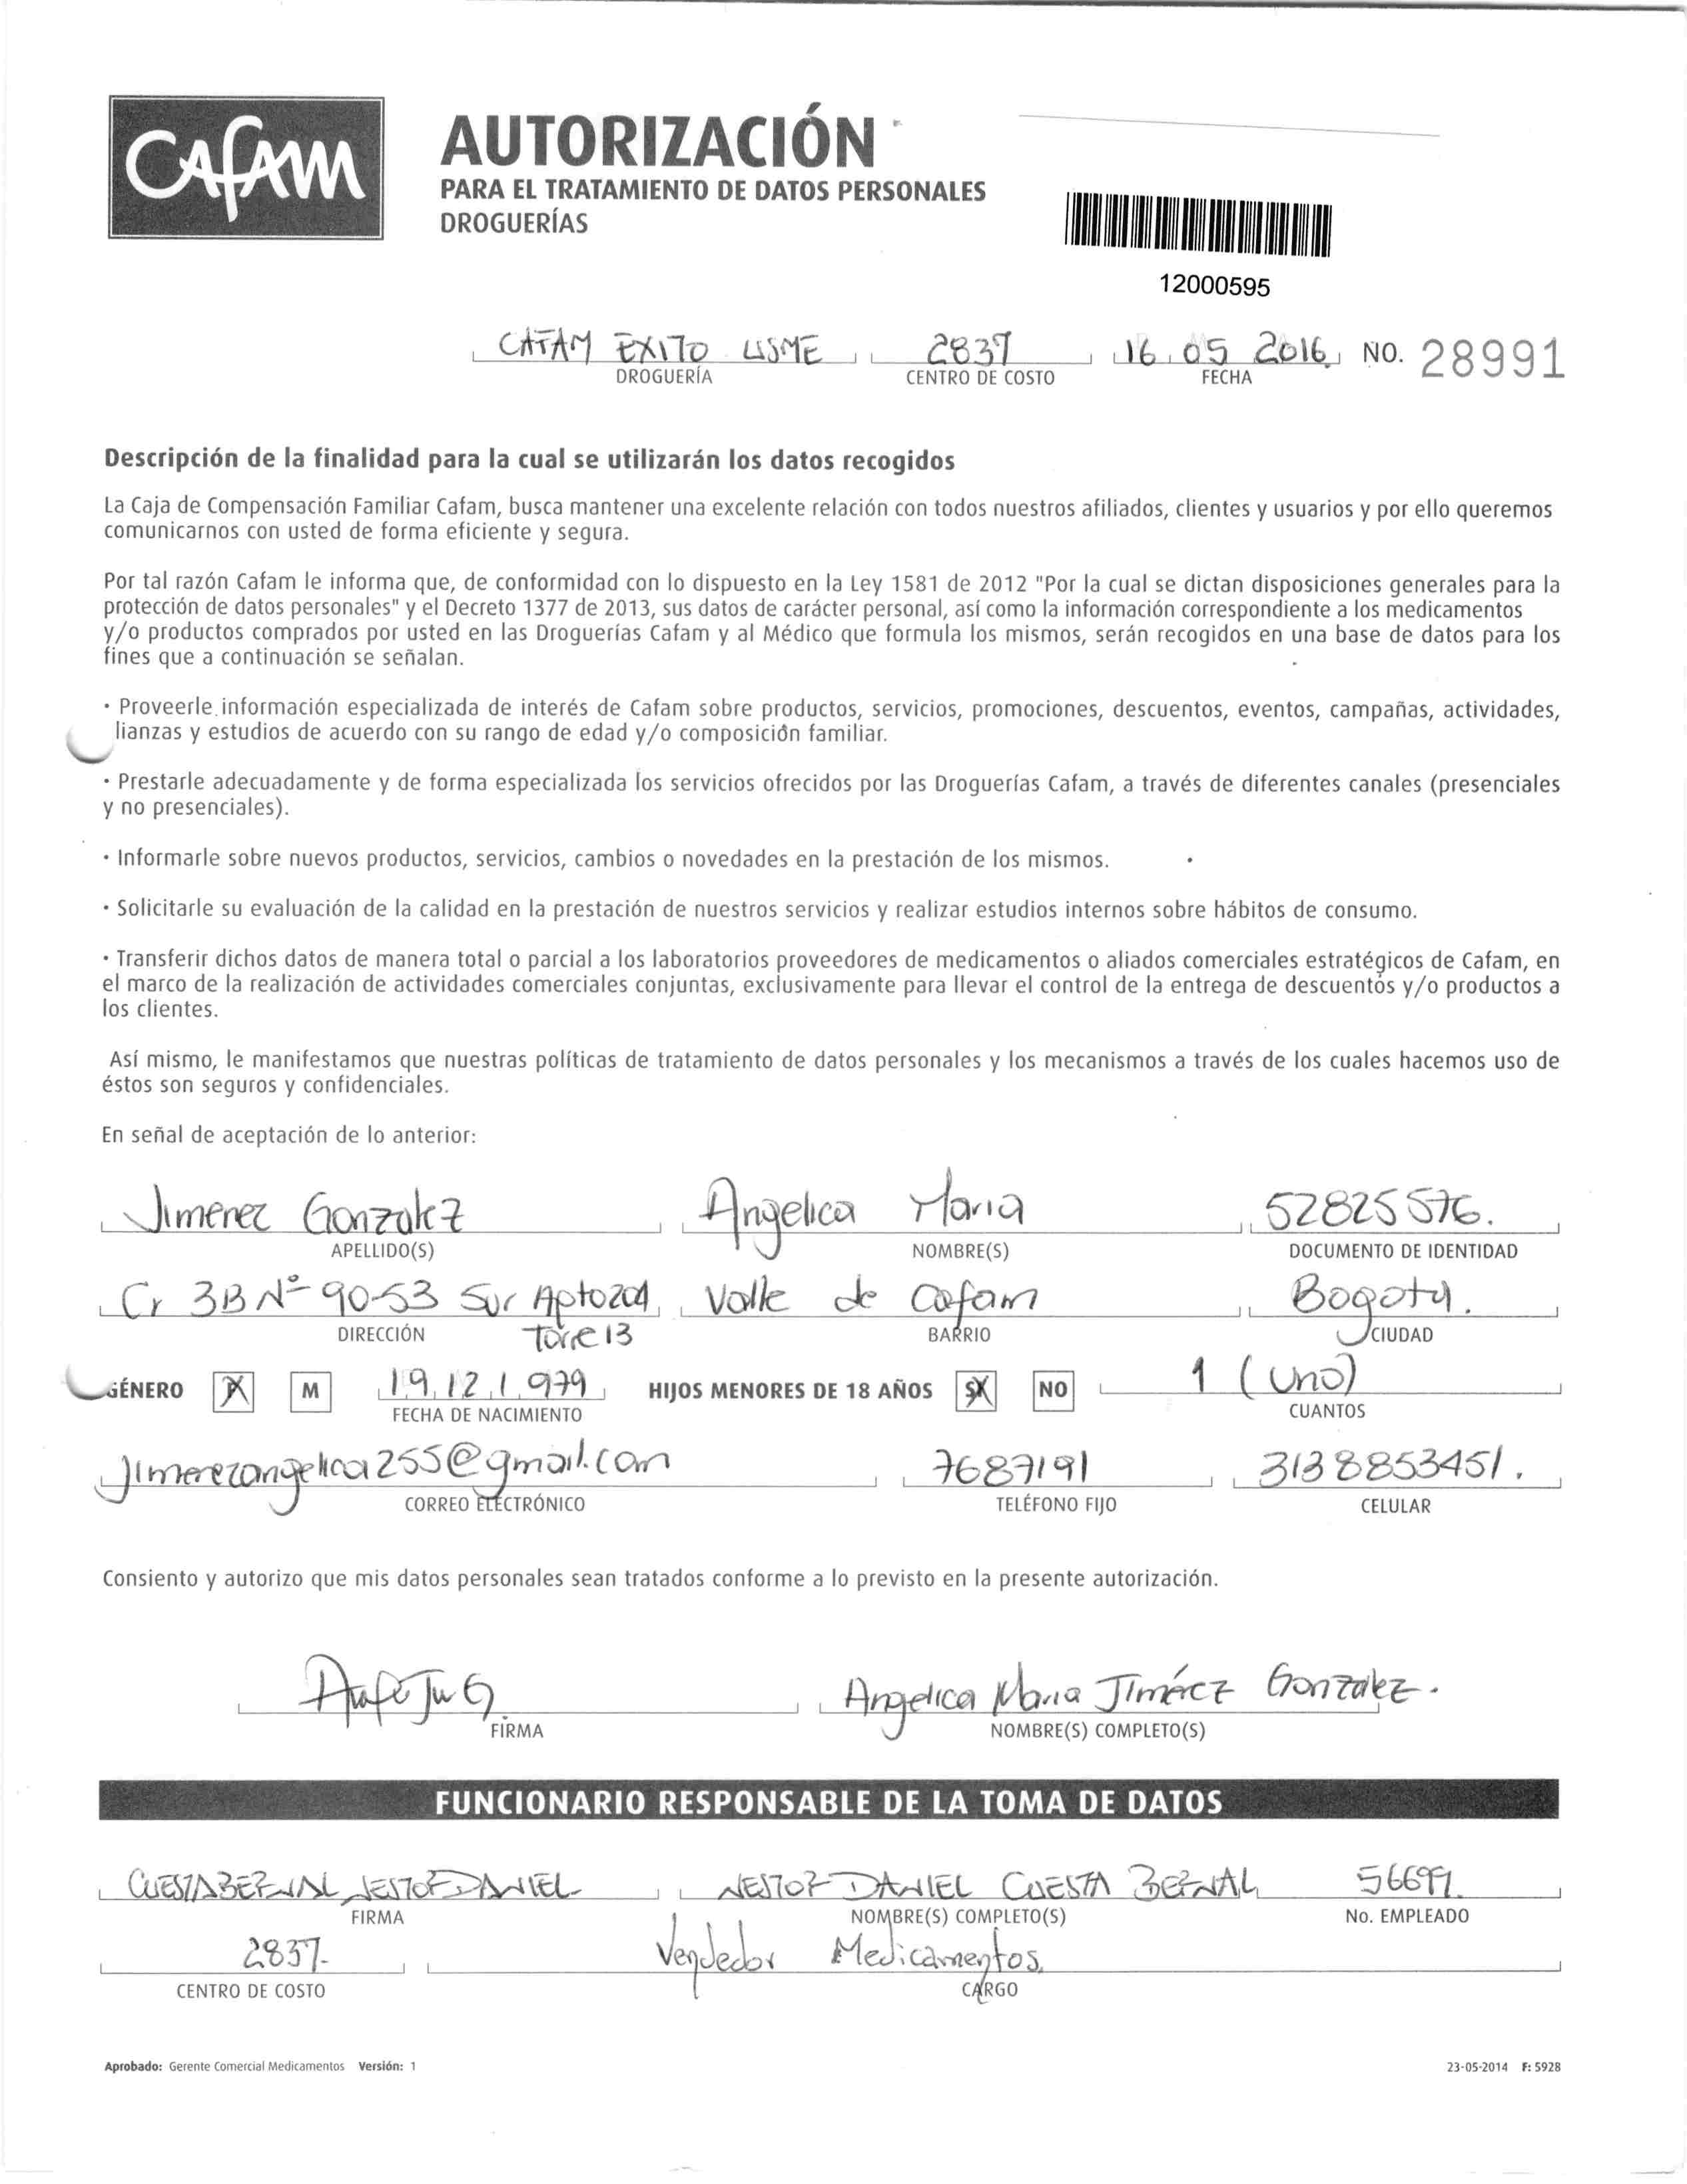 CAFAM
AUTORIZACIÓN
PARA EL TRATAMIENTO DE DATOS PERSONALES
DROGUERÍAS
12000595
CAFAM EXITO USME 2837 16 05 2016 NO. 28991
DROGUERÍA CENTRO DE COSTO FECHA
Descripción de la finalidad para la cual se utilizarán los datos recogidos
La Caja de Compensación Familiar Cafam, busca mantener una excelente relación con todos nuestros afiliados, clientes y usuarios y por ello queremos
comunicarnos con usted de forma eficiente y segura.
Por tal razón Cafam le informa que, de conformidad con lo dispuesto en la Ley 1581 de 2012 "Por la cual se dictan disposiciones generales para la
protección de datos personales" y el Decreto 1377 de 2013, sus datos de carácter personal, así como la información correspondiente a los medicamentos
y/o productos comprados por usted en las Droguerías Cafam y al Médico que formula los mismos, serán recogidos en una base de datos para los
fines que a continuación se señalan.
· Proveerle información especializada de interés de Cafam sobre productos, servicios, promociones, descuentos, eventos, campañas, actividades,
lianzas y estudios de acuerdo con su rango de edad y/o composición familiar.
· Prestarle adecuadamente y de forma especializada los servicios ofrecidos por las Droguerías Cafam, a través de diferentes canales (presenciales
y no presenciales).
· Informarle sobre nuevos productos, servicios, cambios o novedades en la prestación de los mismos.
· Solicitarle su evaluación de la calidad en la prestación de nuestros servicios y realizar estudios internos sobre hábitos de consumo.
· Transferir dichos datos de manera total o parcial a los laboratorios proveedores de medicamentos o aliados comerciales estratégicos de Cafam, en
el marco de la realización de actividades comerciales conjuntas, exclusivamente para llevar el control de la entrega de descuentos y/o productos a
los clientes.
Así mismo, le manifestamos que nuestras políticas de tratamiento de datos personales y los mecanismos a través de los cuales hacemos uso de
éstos son seguros y confidenciales.
En señal de aceptación de lo anterior:
Jimenez Gonzalez Angelica Maria 52825576.
APELLIDO(S) NOMBRE(S) DOCUMENTO DE IDENTIDAD
Cr 3B Nº 90-53 Sur Apto 204 Valle de Cafam Bogota.
DIRECCIÓN Torre 13 BARRIO CIUDAD
GÉNERO X M 19 12 1979 HIJOS MENORES DE 18 AÑOS SX NO 1 (uno)
FECHA DE NACIMIENTO CUANTOS
Jimenezangelica255@gmail.com 7687191 3138853451.
CORREO ELECTRÓNICO TELÉFONO FIJO CELULAR
Consiento y autorizo que mis datos personales sean tratados conforme a lo previsto en la presente autorización.
Angelica Maria Jiménez Gonzalez.
FIRMA NOMBRE(S) COMPLETO(S)
FUNCIONARIO RESPONSABLE DE LA TOMA DE DATOS
CUESTA BERNAL NESTOR DANIEL NESTOR DANIEL CUESTA BERNAL 56699.
FIRMA NOMBRE(S) COMPLETO(S) No. EMPLEADO
2837. Vendedor Medicamentos.
CENTRO DE COSTO CARGO
Aprobado: Gerente Comercial Medicamentos Versión: 1 23-05-2014 F: 5928